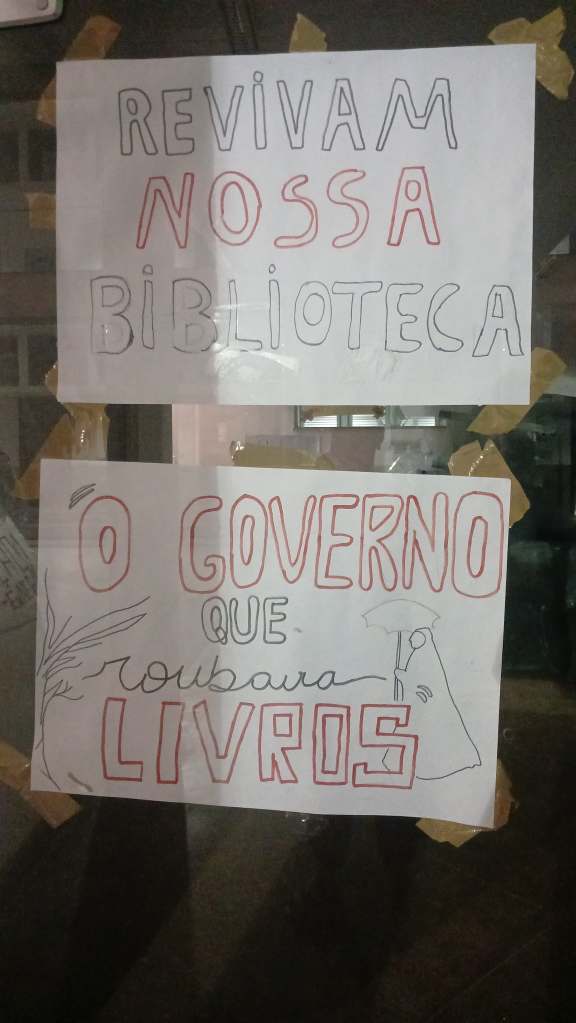 REVIVAM
NOSSA
BIBLIOTECA
"O GOVERNO
QUE
roubava
LIVROS"